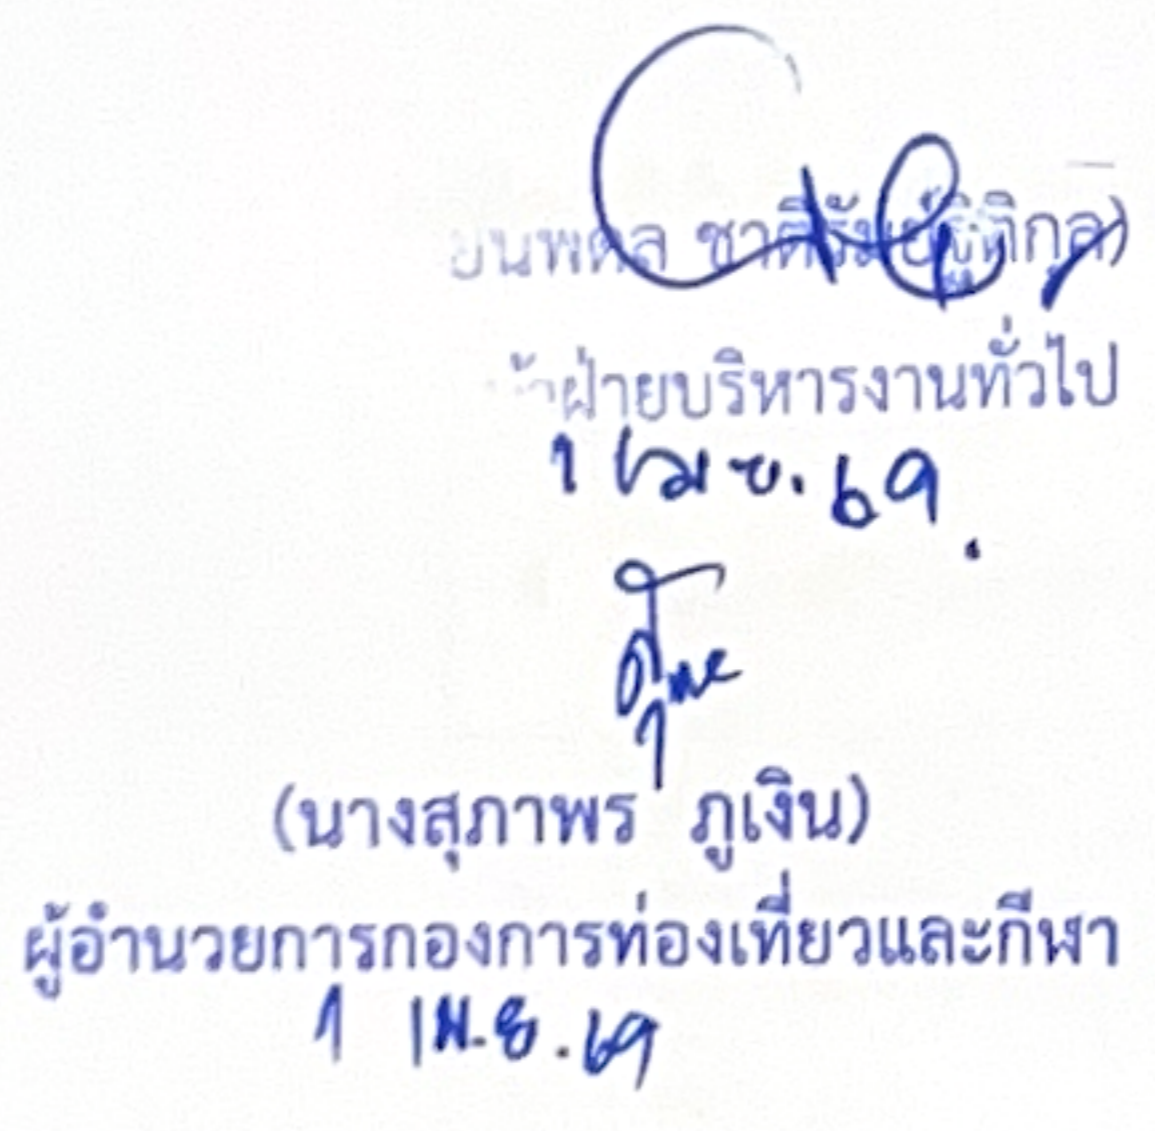 ชาติรัมย์ฐิติกูล)
ฝ่ายบริหารงานทั่วไป
1 เม.ย. 69
(นางสุภาพร ภูเงิน)
ผู้อำนวยการกองการท่องเที่ยวและกีฬา
1 เม.ย. 69